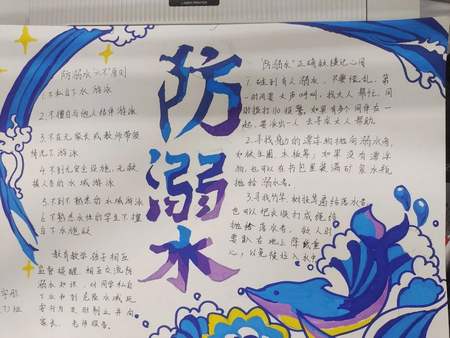 防溺水
"防溺水"六不原则
1.不私自下水游泳
2.不擅自与他人结伴游泳
3.不在无家长或教师带领
情况下游泳
4.不到无安全设施、无救
援人员的水域游泳
5.不到不熟悉的水域游泳
6.不熟悉水性的学生不擅自
下水施救
教育教学孩子相互
监督提醒,相互交流防
溺水知识,以同学私自
下水和到危险水域玩
家长、老师报告。
"防溺水"正确救援记心间
1.碰到有人溺水,不要慌乱,第
一时间要大声呼叫,找大人帮忙,同
时拨打110报警,如果有多个同伴在一
起,要派出一人去寻求大人帮助。
2.寻找身边的漂浮物抛向溺水者,
如救生圈、木板等;如果没有漂浮
物,也可以在书包里装满矿泉水瓶
抛给溺水者。
3.寻找竹竿、树枝等递给落水者,
也可以把衣服打成绳结
抛给落水者。救人时
要趴在地上降低重
心,以免被拉入水中